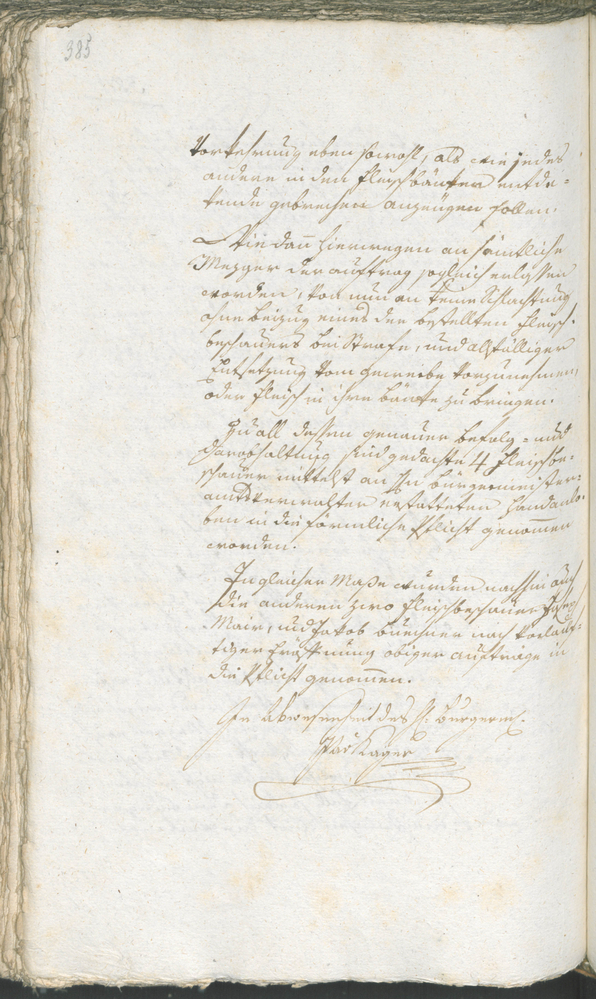 385
Vorkehrung eben sowohl, als wie jedes
andere in den Fleischbänken entde-
kende gebrechen anzeügen sollen.
Wie dann hierwegen an sämtliche
Mezger der auftrag sogleich erlassen
worden, von nun an keine Schlachtung
ohne beizug eines der bestellten Fleisch-
beschauers bei Strafe, und allfälliger
Entsetzung vom gewerbe vorzunehmen,
oder Fleisch in ihre bänke zu bringen.
Zu all dessen genauer befolg- und
darobhaltung sind gedachte 4 Fleischbe-
schauer mittelst an H. bürgermeister-
amtsverwalter erstatteten handanlo-
ben in die förmliche Pflicht genommen
worden.
In gleicher Maße wurden nachhin auch
die anderen zwo Fleischbeschauer Joseph
Mair, und Jakob buchner nach vorläuf-
tiger Eröffnung obiger aufträge in
die Pflicht genommen.
In Abwesenheit des H. Burgerm.